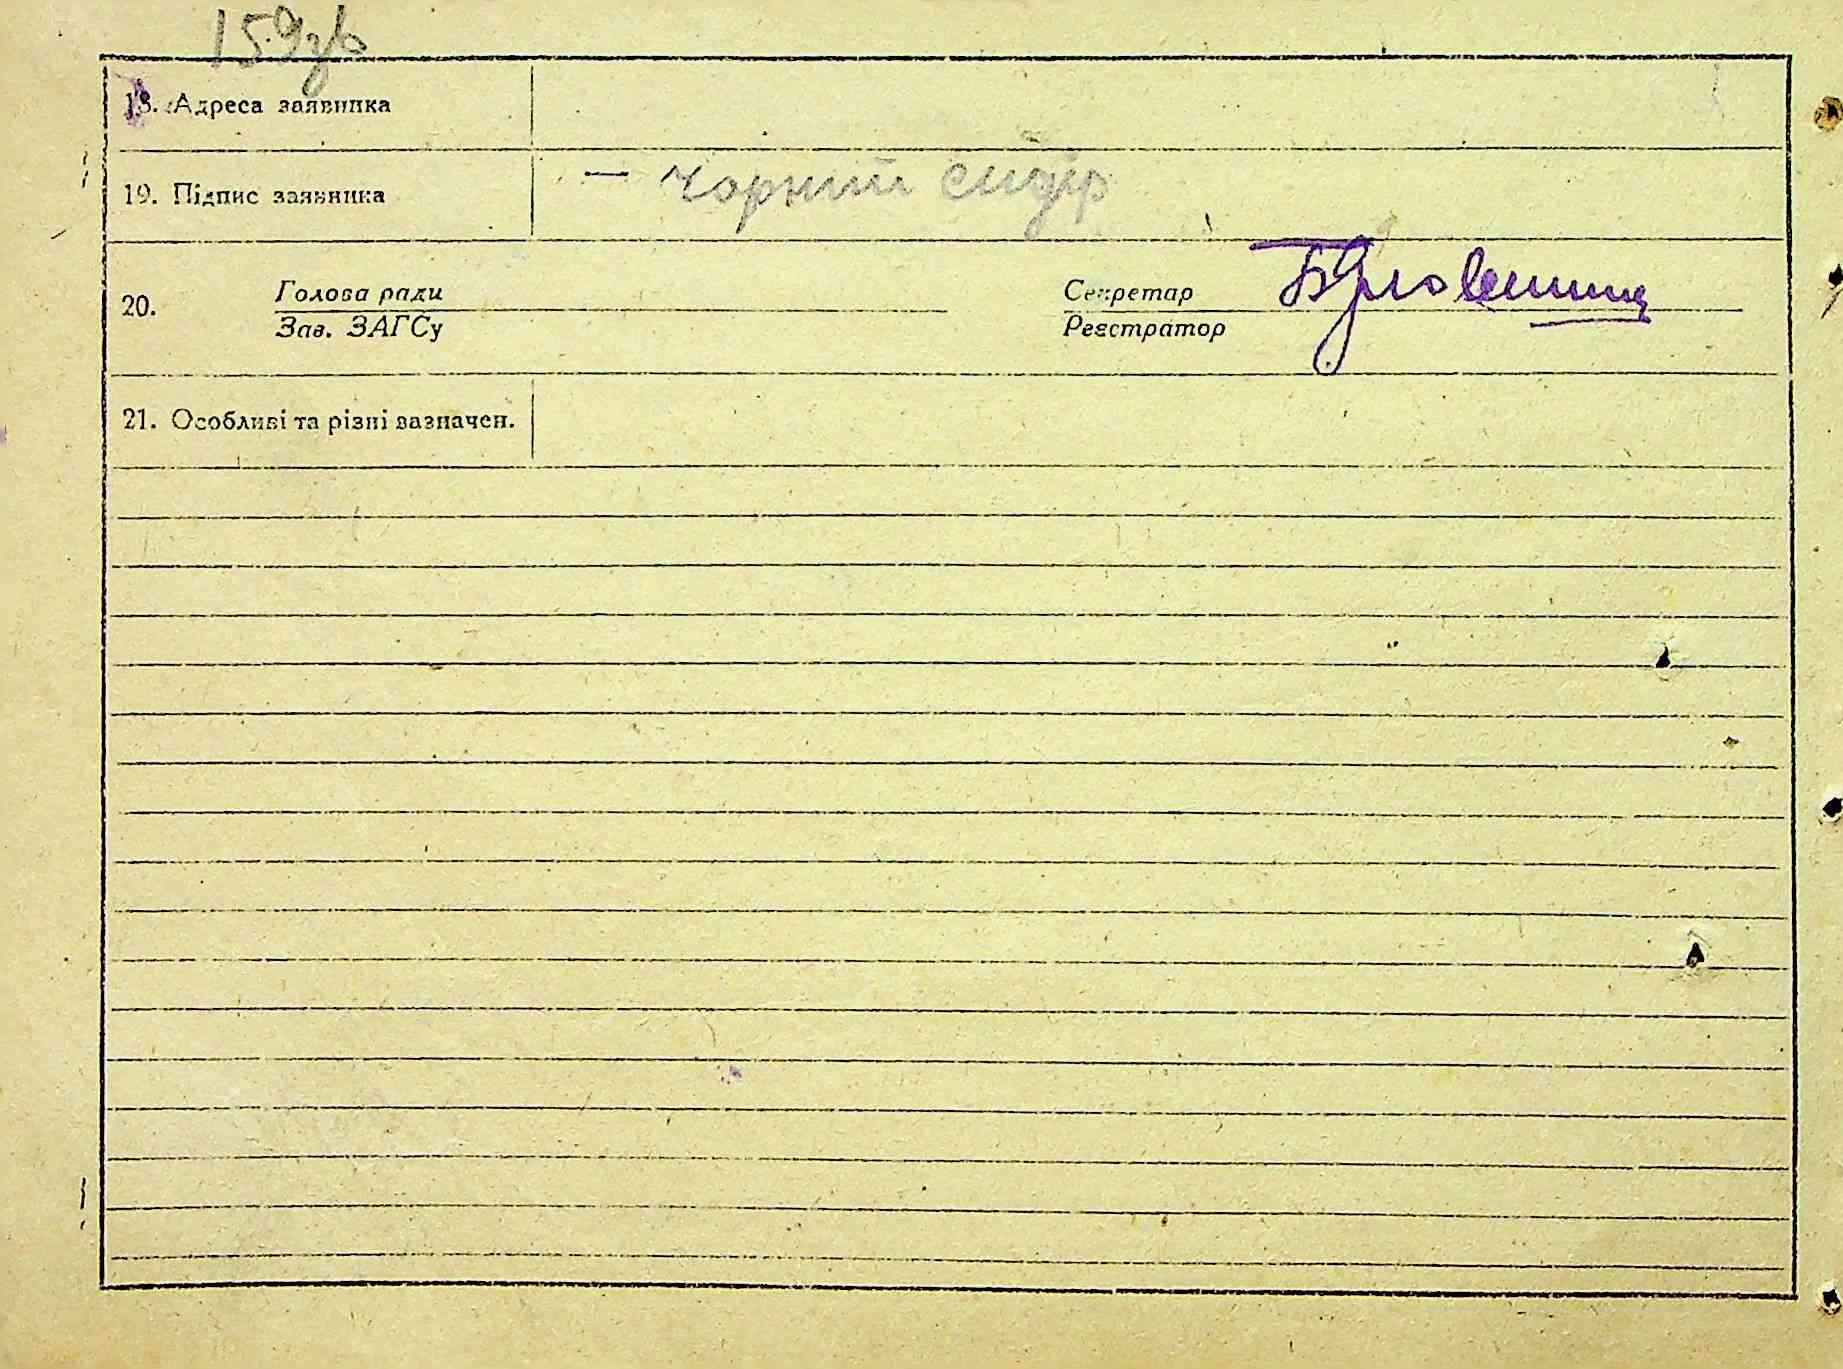 159зв
18. Адреса заявника
19. Підпис заявника — чорний сидір
20. Голова ради Секретар
Зав. ЗАГСу Реєстратор
21. Особливі та різні вазначен.